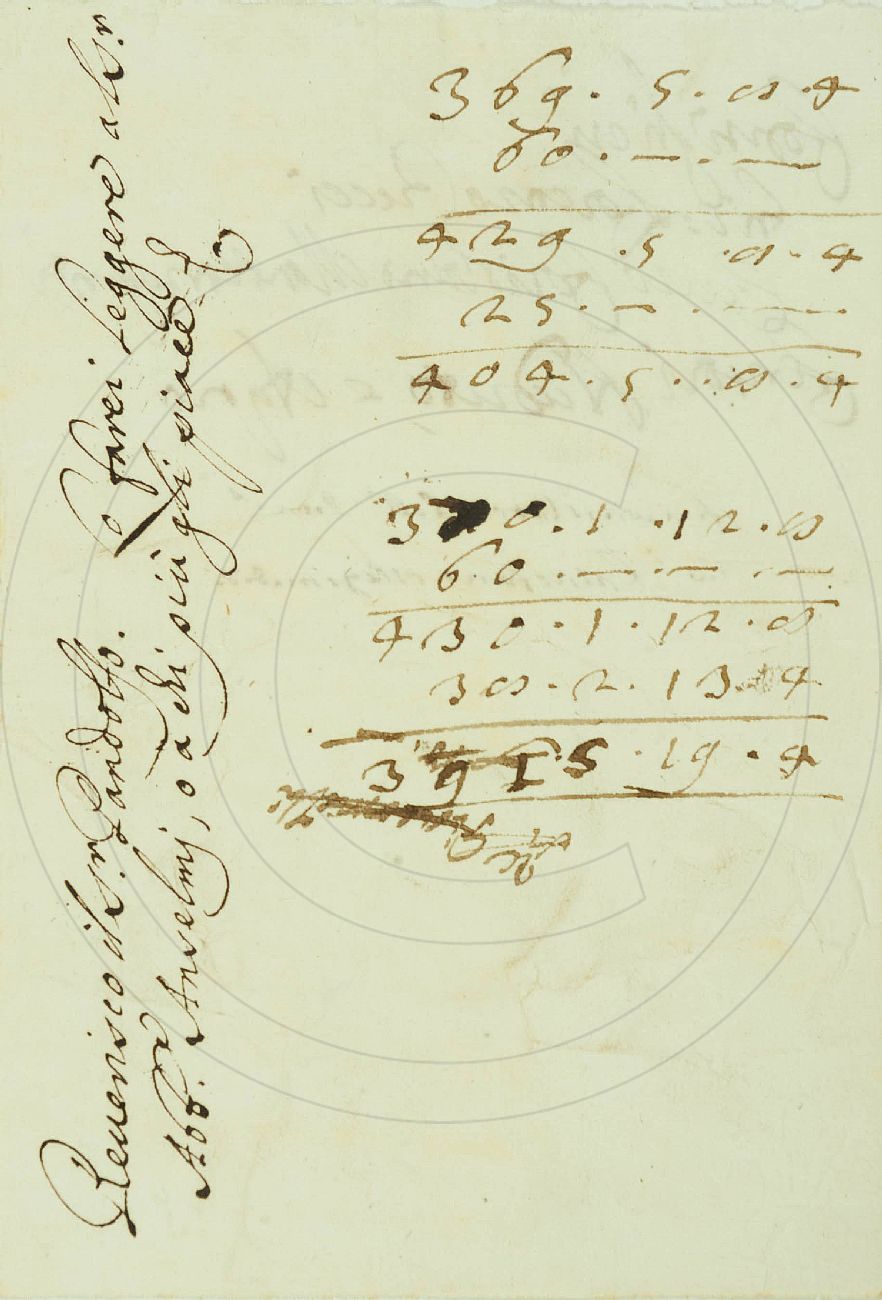 Reuerisco il S.r Pandolfo. Lo farei leggere al S.r
Abb.e Anselmj, o à chi più gli piace
369 · 5 · 8 · 4
60 · — · —
429 · 5 · 8 · 4
25 · — · —
404 · 5 · · 8 · 4
370 · 1 · 12 · 8
60 · — · — · —
430 · 1 · 12 · 8
38 · 2 · 13 · 4
391 5 · 19 · 4